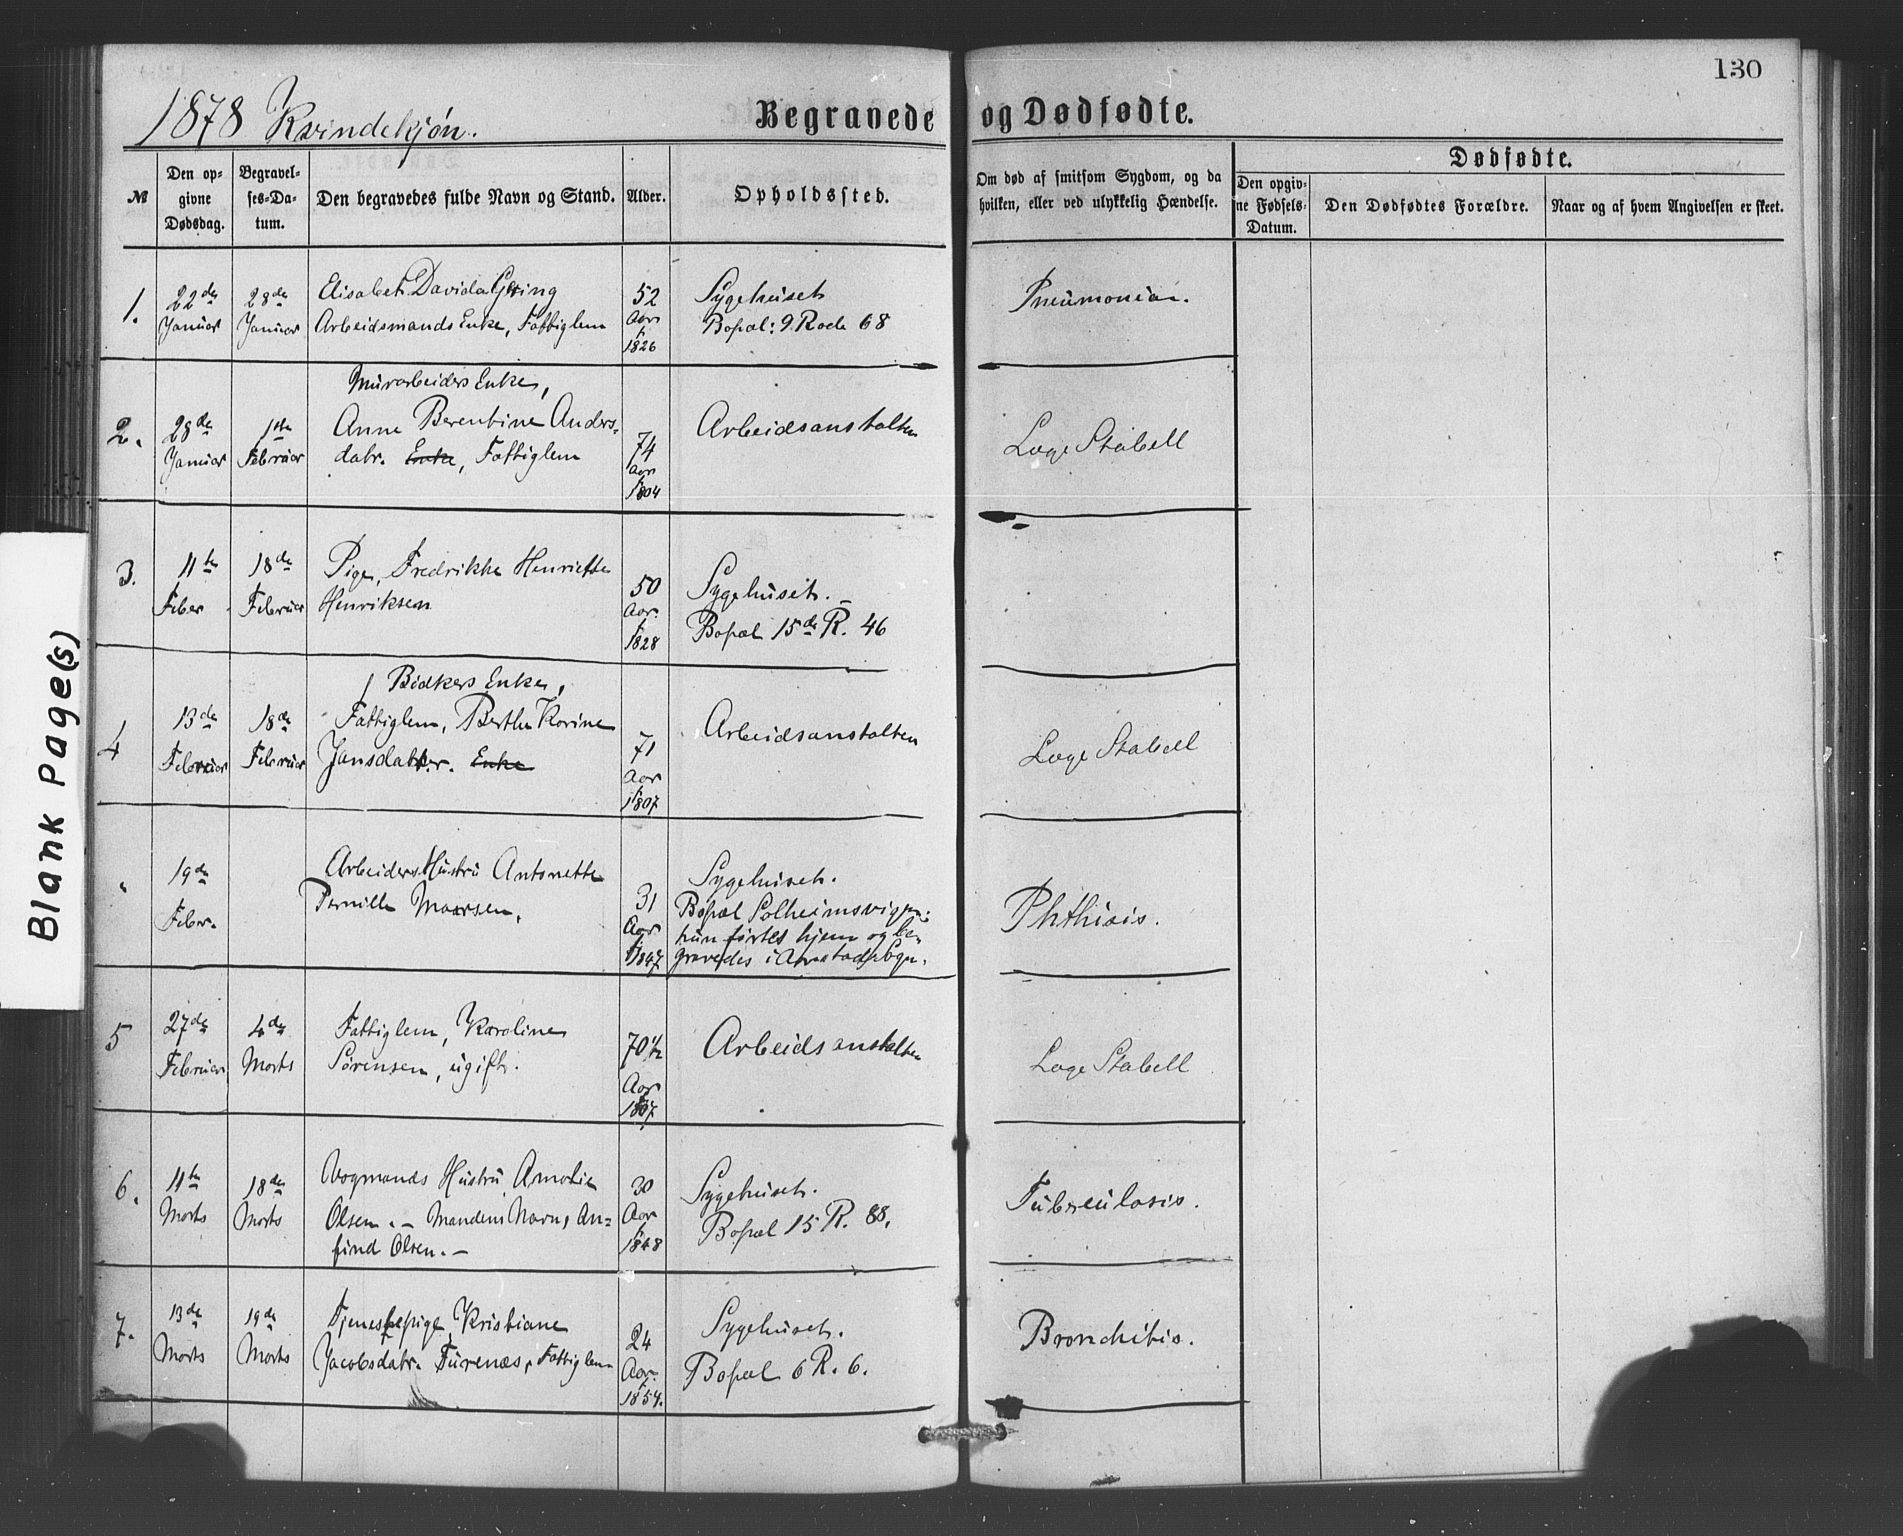 130
1878 Kvindekjøn.
Begravede og Dødfødte.
№
Den opgivne Dødsdag.
Begravelses-Datum.
Den begravedes fulde Navn og Stand.
Alder.
Opholdssted.
Om død af smitsom Sygdom, og da hvilken, eller ved ulykkelig Hændelse.
Dødfødte.
Den opgivne Fødsels-Datum.
Den Dødfødtes Forældre.
Naar og af hvem Angivelsen er skeet.
1.
22de Januar
28de Januar
Elisabet Davida
Arbeidsmands Enke, Fattiglem
52 Aar
1826
Sygehuset
Bopæl: 9 Rode 68
Pneumonia.
2.
28de Januar
1ste Februar
Murarbeiders Enke,
Anne Berentine Anders-
datr. Enke, Fattiglem
74 Aar
1804
Arbeidsanstalten
Læge Stabell
3.
11te Febr
18de Februar
Pige, Fredrikke Henriette
Henriksen
50 Aar.
1828
Sygehuset.
Bopæl 15de R. 46
4
13de Februar
18de Februar
Bødkers Enke,
Fattiglem, Berthe Karine
Jansdatter. Enke
71 Aar
1807
Arbeidsanstalten
Læge Stabell
"
19de Febr.
Arbeiders Hustru Antonette
Pernille Maarsen,
31 Aar
1847
Sygehuset.
Bopæl Solheimsvigen:
hun førtes hjem og be-
gravedes i Aarstad Sogn.
Phthisis.
5
27de Februar
4de Marts
Fattiglem, Karoline
Sørensen, ugift.
70½ Aar
1807
Arbeidsanstalten
Læge Stabell
6.
11te Marts
18de Marts
Vognmands Hustru Amalie
Olsen. - Mandens Navn, An-
find Olsen. -
30 Aar
1848
Sygehuset.
Bopæl 15 R. 88.
Tuberculosis.
7.
13de Marts
19de Marts
Tjenestepige, Kristiane
Jacobsdatr. Furenæs, Fattiglem
24 Aar.
1854.
Sygehuset.
Bopæl 6 R. 6.
Bronchitis.
Blank Page(s)